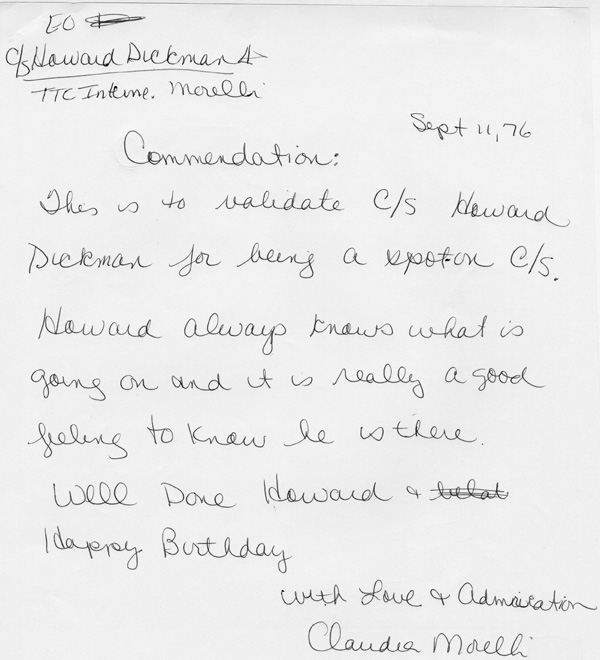 EO
C/S Howard Dickman
TTC Interne. Morelli
Sept 11, 76
Commendation:
This is to validate C/S Howard
Dickman for being a spot on C/S.
Howard always knows what is
going on and it is really a good
feeling to know he is there.
Well Done Howard &
Happy Birthday
with Love & Admairation
Claudia Morelli